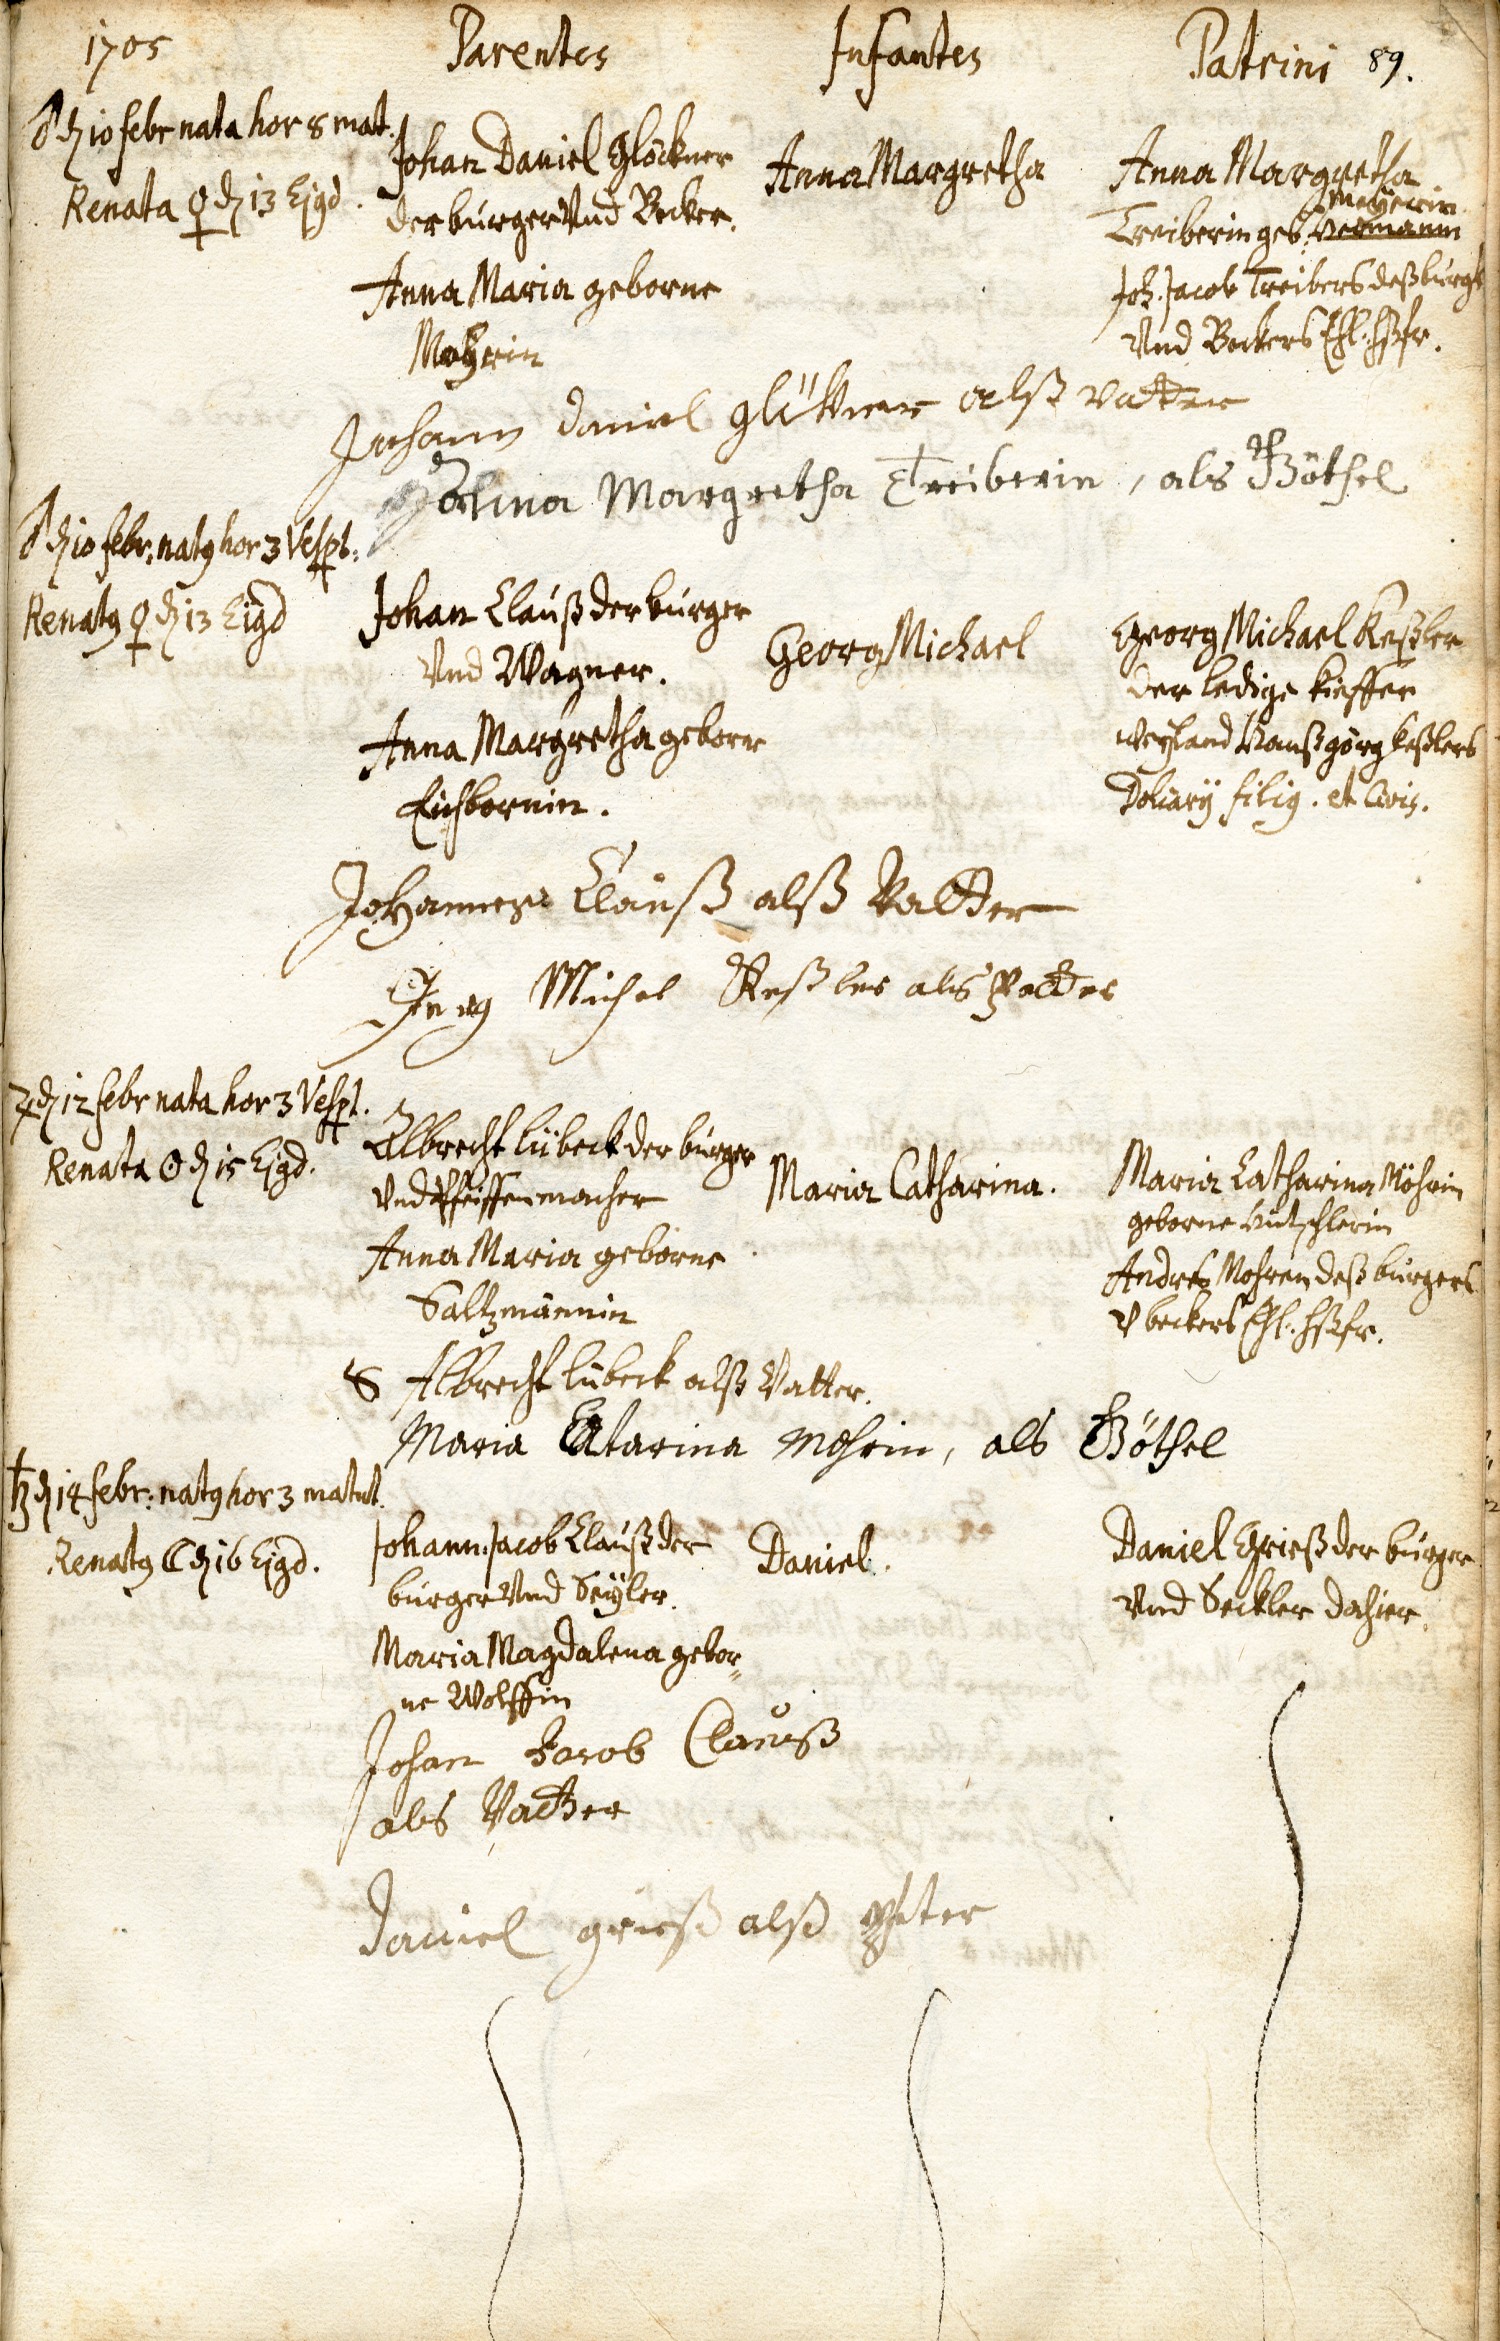 1705 Parentes Infantes Patrini 89.
♂ d. 10 febr nata hor 8 mat.
Renata ♀ d. 13 Ejgd.
Johan Daniel Glöckner
der burger Und Becker.
Anna Maria geborne
Mohrin
Anna Margretha
Anna Margretha
Mayerin
Treiberin geb.
Joh. Jacob Treibers deß burg
Und Beckers Ehl. hßfr.
Johann Daniel glöckner alß vatter
Anna Margretha Treiberin, als Göthel
♂ d. 10 febr: nat9 hor 3 Vespt:
Renat9 ♀ d. 13 Eigd
Johan Clauß der burger
Und Wagner.
Anna Margretha geborn
Eichbornin.
Georg Michael
Georg Michael Keßler
der ledige kieffer
weyland Hanß görg keßlers
Doliarÿ filig. et Civis.
Johannes Clauß alß Vatter
Michel Keßler als Petter
♃ d. 12 febr nata hor 3 Vespt.
Renata ☉ d. 15 Ejgd.
Albrecht lübeck der burger
Und Pfeiffenmacher
Anna Maria geborne
Saltzmännin
Maria Catharina.
Maria Catharina Möhrin
geborne
Andreæ Mohren deß burgers
V beckers Ehl. hßfr.
Albrecht lübeck alß Vatter.
Maria Catarina Mohrin, als Göthel
♄ d. 14 febr: nat9 hor 3 matut.
Renat9 ☾ d. 16 Ejgd.
Johann Jacob Clauß der
burger Und Seÿler.
Maria Magdalena gebor=
ne Wolffin
Daniel.
Daniel Grieß der burger
Und Seckler dahier.
Johan Jacob Clauß
als Vatter
Daniel grieß alß Petter